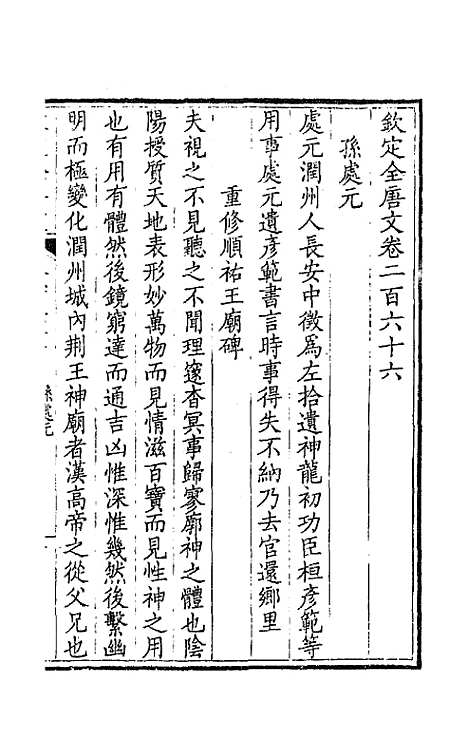 欽定全唐文卷二百六十六
孫處元
處元潤州人長安中徵爲左拾遺神龍初功臣桓彥範等
用事處元遺彥範書言時事得失不納乃去官還鄉里
重修順祐王廟碑
夫視之不見聽之不聞理邃杳冥事歸寥廓神之體也陰
陽授質天地表形妙萬物而見情滋百寶而見性神之用
也有用有體然後鏡窮達而通吉凶惟深惟幾然後繫幽
明而極變化潤州城內荆王神廟者漢高帝之從父兄也
孫處元